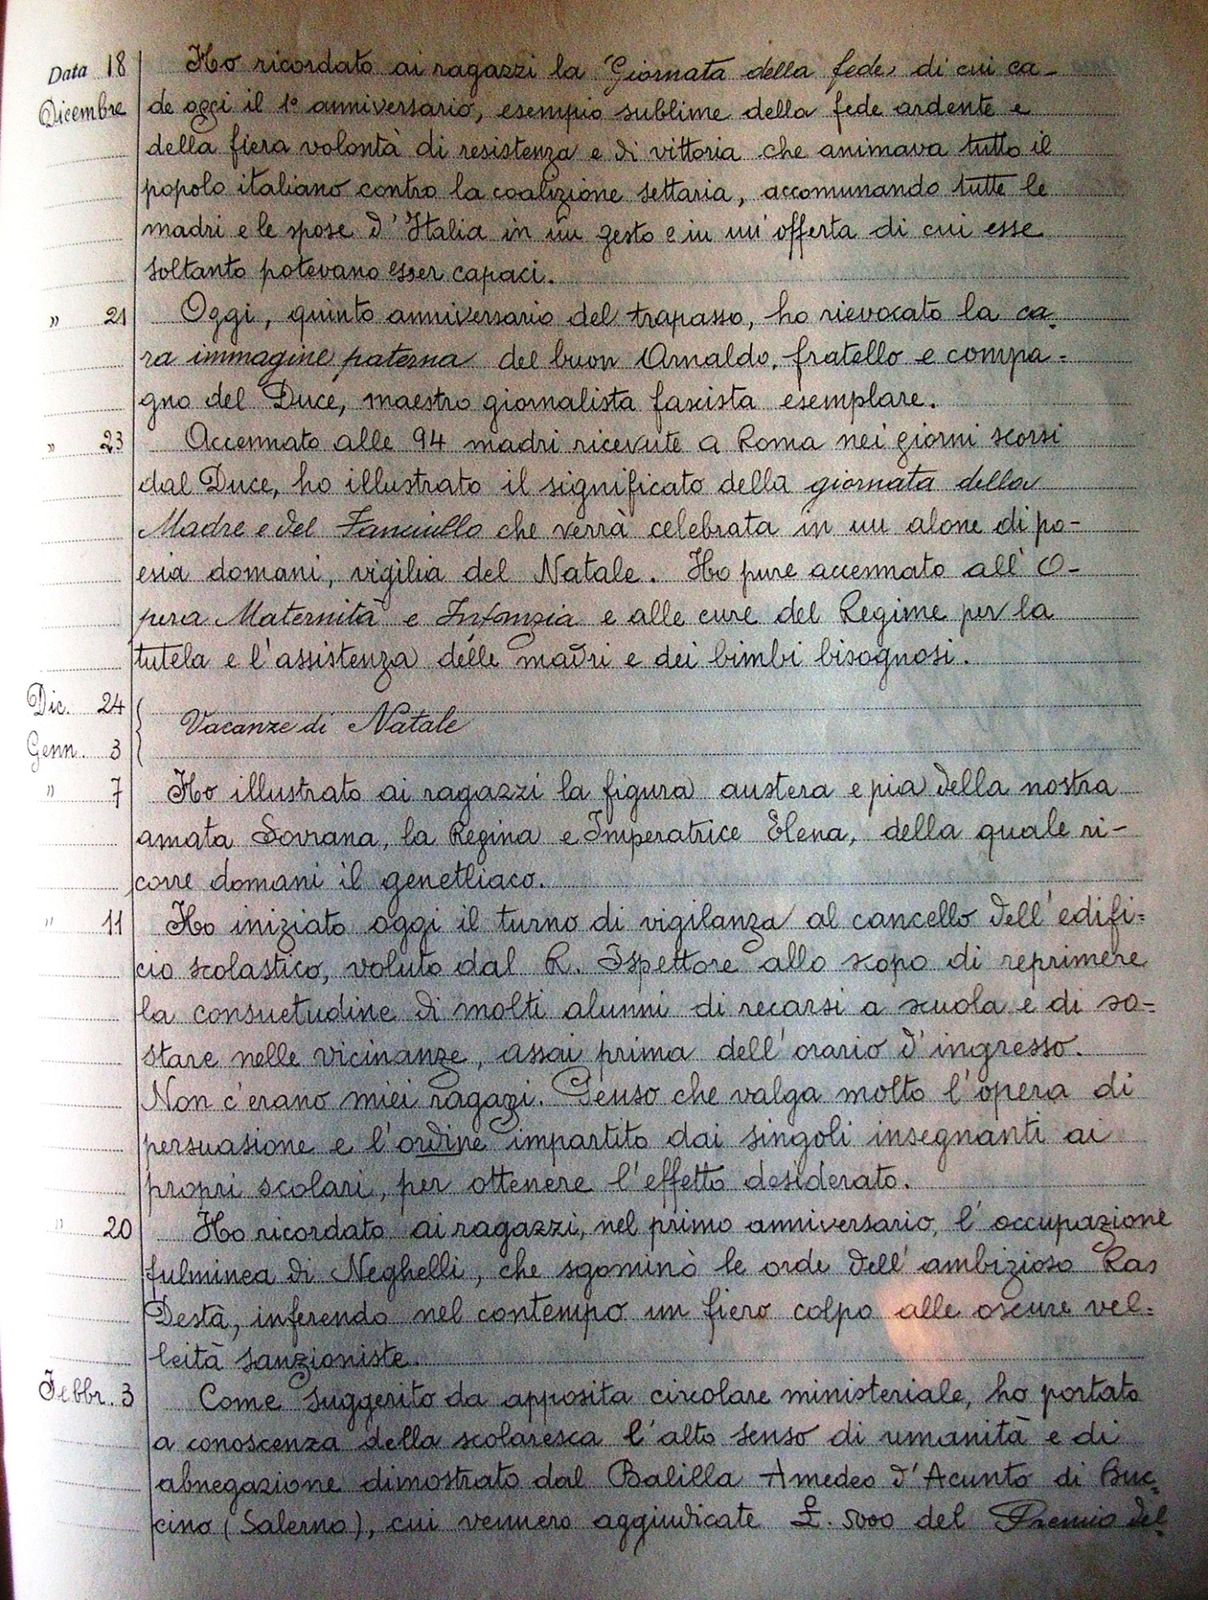 Data 18 Ho ricordato ai ragazzi la Giornata della fede, di cui ca-
Dicembre de oggi il 1° anniversario, esempio sublime della fede ardente e
della fiera volontà di resistenza e di vittoria che animava tutto il
popolo italiano contro la coalizione settaria, accomunando tutte le
madri e le spose d'Italia in un gesto e in un'offerta di cui esse
soltanto potevano esser capaci.
" 21 Oggi, quinto anniversario del trapasso, ho rievocato la ca-
ra immagine paterna del buon Arnaldo, fratello e compa-
gno del Duce, maestro giornalista fascista esemplare.
" 23 Accennato alle 94 madri ricevute a Roma nei giorni scorsi
dal Duce, ho illustrato il significato della giornata della
Madre e del Fanciullo che verrà celebrata in un alone di po-
esia domani, vigilia del Natale. Ho pure accennato all'O-
pera Maternità e Infanzia e alle cure del Regime per la
tutela e l'assistenza delle madri e dei bimbi bisognosi.
Dic. 24
Vacanze di Natale
Genn. 3
" 7 Ho illustrato ai ragazzi la figura austera e pia della nostra
amata Sovrana, la Regina e Imperatrice Elena, della quale ri-
corre domani il genetliaco.
" 11 Ho iniziato oggi il turno di vigilanza al cancello dell'edifi-
cio scolastico, voluto dal R. Ispettore allo scopo di reprimere
la consuetudine di molti alunni di recarsi a scuola e di so-
stare nelle vicinanze, assai prima dell'orario d'ingresso.
Non c'erano miei ragazzi. Penso che valga molto l'opera di
persuasione e l'ordine impartito dai singoli insegnanti ai
propri scolari, per ottenere l'effetto desiderato.
" 20 Ho ricordato ai ragazzi, nel primo anniversario, l'occupazione
fulminea di Neghelli, che sgominò le orde dell'ambizioso Ras
Destà, inferendo nel contempo un fiero colpo alle oscure vel-
leità sanzioniste.
Febbr. 3 Come suggerito da apposita circolare ministeriale, ho portato
a conoscenza della scolaresca l'alto senso di umanità e di
abnegazione dimostrato dal Balilla Amedeo d'Acunto di Buc-
cino (Salerno), cui vennero aggiudicate £. 5000 del Premio del